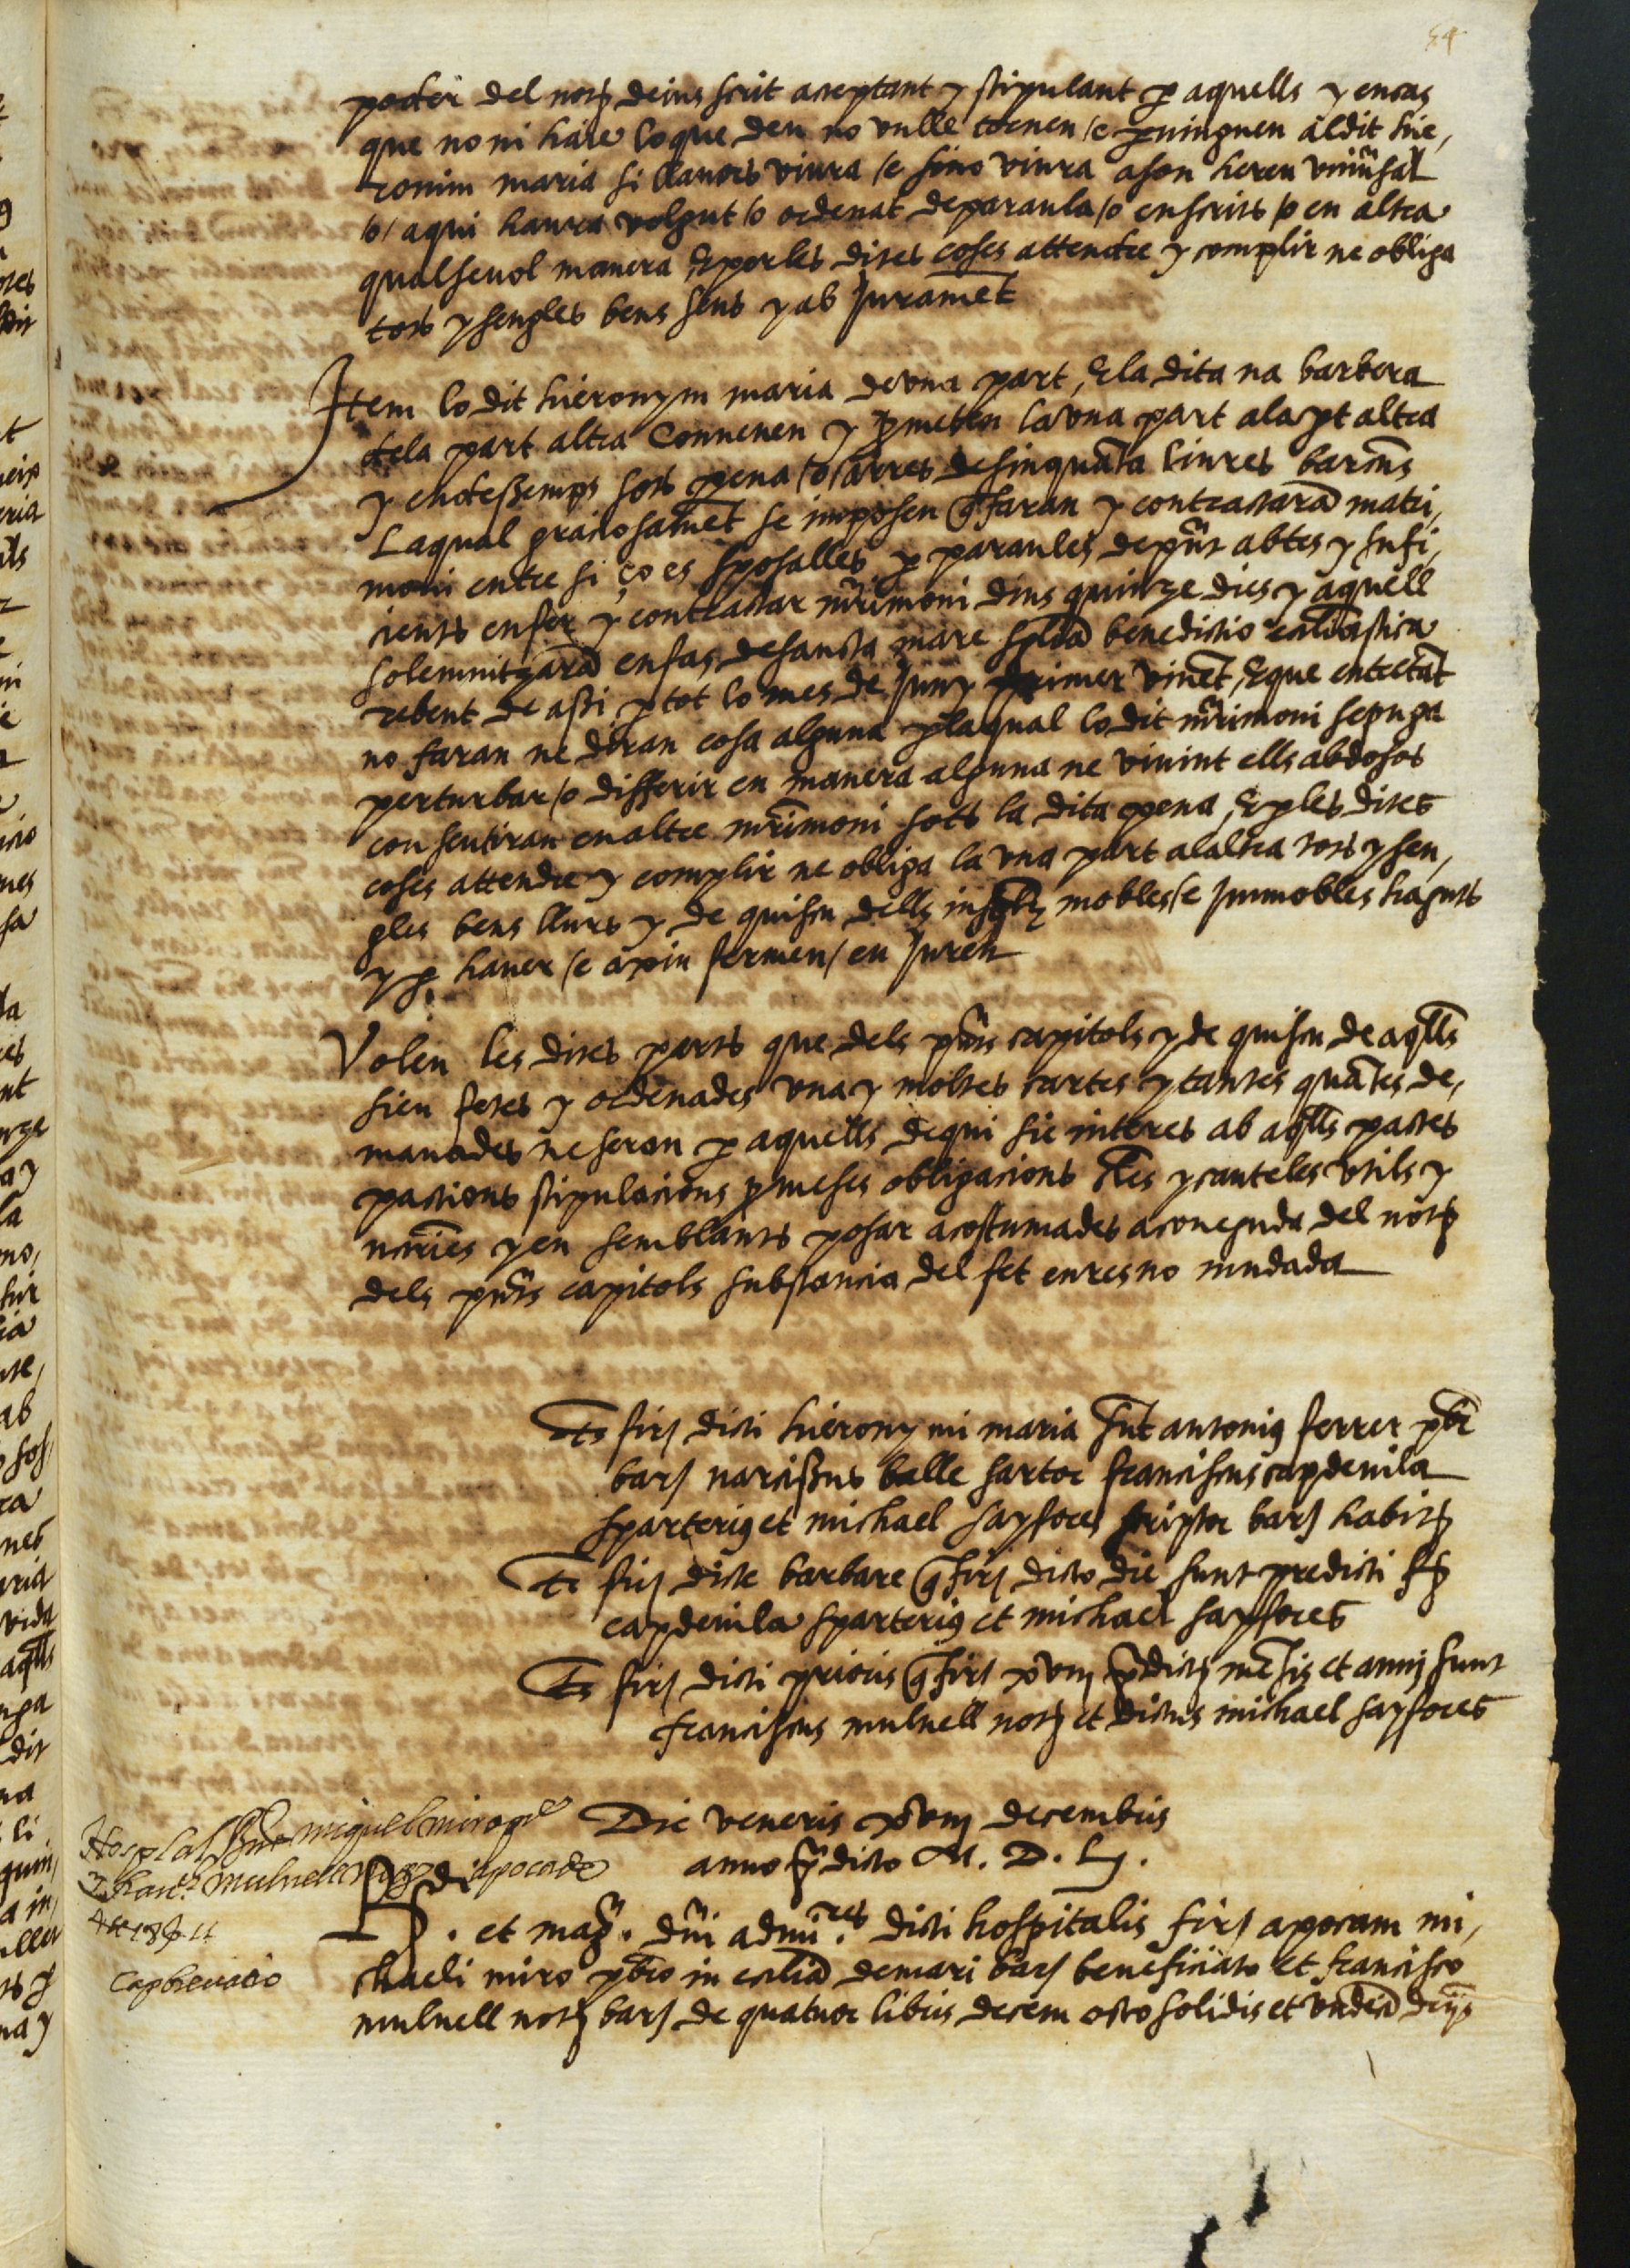 54
poder del notʒ deius scrit acceptant y stipulant ꝑ aquells y en cas
que no ni haie lo que deu no vulle tornen /e ꝑuinguen al dit hie,
ronim maria si llauors viura /e sino viura a son hereu vniũsal
/o/ aqui haura volgut /o ordenat de paraula /o en scrits /o en altra
qualseuol manera E per les dites coses attendre y complir ne obliga
tots y sengles bens seus y ab Juramēt
Item lo dit hieronym maria de vna part, E la dita na barbera
de la part altra Conuenen y ꝑmeten la vna part a la pt altra
y endessemps sots pena /o/ arres de sinquāta liures barcñs
La qual graciosamēt se imposen q̃ faran y contractarā matri,
moni entre si ço es sposalles ꝑ paraules de pñt abtes y sufi,
cients en fer y contractar mr̃imoni dins quinze dies y aquell
solemnitzarā en fas de sancta mare sglēa benedictio ecclīastica
rebent de assi ꝑ tot lo mes de Juny primer vinēt, E que entretāt
no faran ne diran cosa alguna ꝑ la qual lo dit mr̃imoni se puga
perturbar /o differir en manera alguna ne viuint ells abdosos
consentiran en altre mr̃imoni sots la dita pena, E ꝑ les dites
coses attendre y complir ne obliga la vna part a laltra tots y sen,
gles bens llurs y de quiscu dells insolꝫ mobles /e Immobles haguts
y ꝑ hauer /e axiu fermen /en Juren
Volen les dites parts que dels pñts capitols y de quiscu de aq̃lls
sien fetes y ordenades vna y moltes cartes y tantes quātes de,
manades ne seran ꝑ aquells de qui sie interes ab aq̃lls pactes
pactions stipulacions ꝑmeses obligacions cl̃es y cauteles vtils y
ncr̃ies y en semblants posar acostumades a coneguda del notʒ
dels pñts capitols substancia del fet en res no mudada
Ts firꝭ dicti hieronymi maria sũt antoniꝰ ferrer pbr̃
barꝭ narcissus balle sartor franciscus capdeuila
sparteriꝰ et michael sayfores scriptor barꝭ habitʒ
Ts firꝭ dicte barbare q̃ firꝭ dicto die sunt predicti ffʒ
capdeuila sparteriꝰ et michael sayfores
Ts firꝭ dicti prioris q̃ firꝭ xvıȷ p̃dictꝭ mēsis et annj sunt
franciscus mulnell notʒ et dictus michael sayfores
Die veneris xvıȷ decembris
anno p̃dicto M. D. Lj.
miquel miro pre
mulnell
apoca de
capbreuacio
Rdi. et magꝰ. dñi admĩres. dicti hospitalis firꝭ apocam mi,
chaeli miro pbr̃o in ecclīa de mari barꝭ beneficiato et francisco
mulnell notʒ barꝭ de quatuor libris decem octo solidis et vndecī drijs